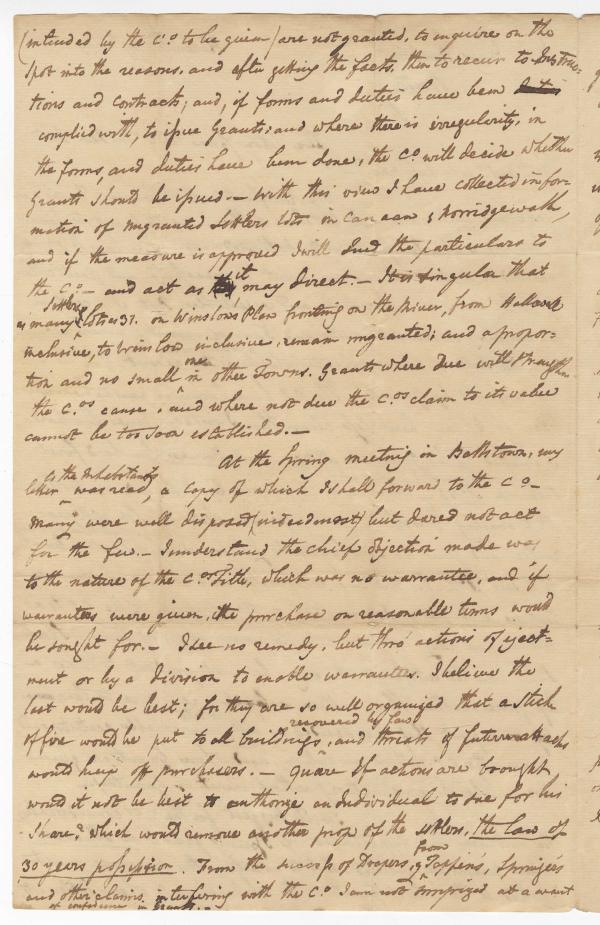 (intended by the Co. to be given) are not granted, to enquire on the
spot into the reasons, and after getting the facts, then to recur to Instruc=
tions and contracts; and, if forms and duties have been
complied with, to issue Grants; and where there is irregularity, in
the forms, and duties have been done, the Co. will decide whether
Grants should be issued. — With this view I have collected infor=
mation of ungranted Settlers lots in Canaan & Norridgewalk,
and if the measure is approved I will send the particulars to
the Co. — and act as it may direct. — It is singular that
as many Settlers lots as 37. on Winslow's Plan fronting on the River, from Hallowell
inclusive, to Winslow inclusive, remain ungranted; and a propor=
tion and no small one in other Towns. Grants where due will strengthen
the Co.s cause, and where not due the Co.s claim to its value
cannot be too soon established. —
At the Spring meeting in Ballstown, my
letter as the Inhabitants was read, a copy of which I shall forward to the Co —
Many were well disposed (indeed most) but dared not act
for the few. — I understand the chief objection made was
to the nature of the Co.s Title, which was no warrantee, and if
warrantees were given, the purchase on reasonable terms would
be sought for. — I see no remedy, but thro' actions of eject=
ment or by a division to enable warrantees. I believe the
last would be best; for they are so well organized that a stick
of fire would be put to all buildings recovered by law, and threats of future attacks
would keep off purchasers. — quare If actions are bought
would it not be best to authorize an Individual to sue for his
share? which would remove another prop of the settlers, the law of
30 years possession. From the success of Drapers, & from Toppins,
and other claims interfering with the Co. I am not surprized at a want
of confidence in